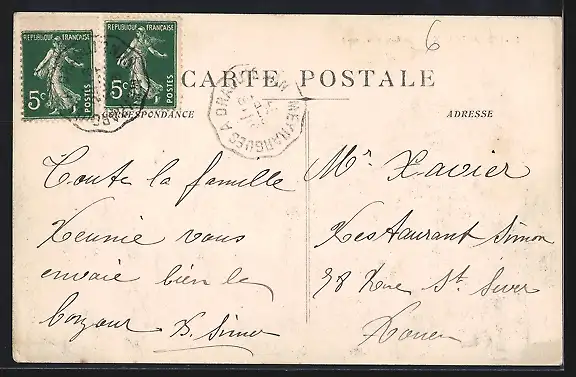 RÉPUBLIQUE FRANÇAISE
5c POSTES
RÉPUBLIQUE FRANÇAISE
5c POSTES
6
CARTE POSTALE
MEYRARGUES A DRA
CORRESPONDANCE
ADRESSE
Toute la famille
Reunie vous
envoie bien le
bonjour S. Simon
Mr Xavier
Restaurant Simon
38 Rue St. Sever
Rouen